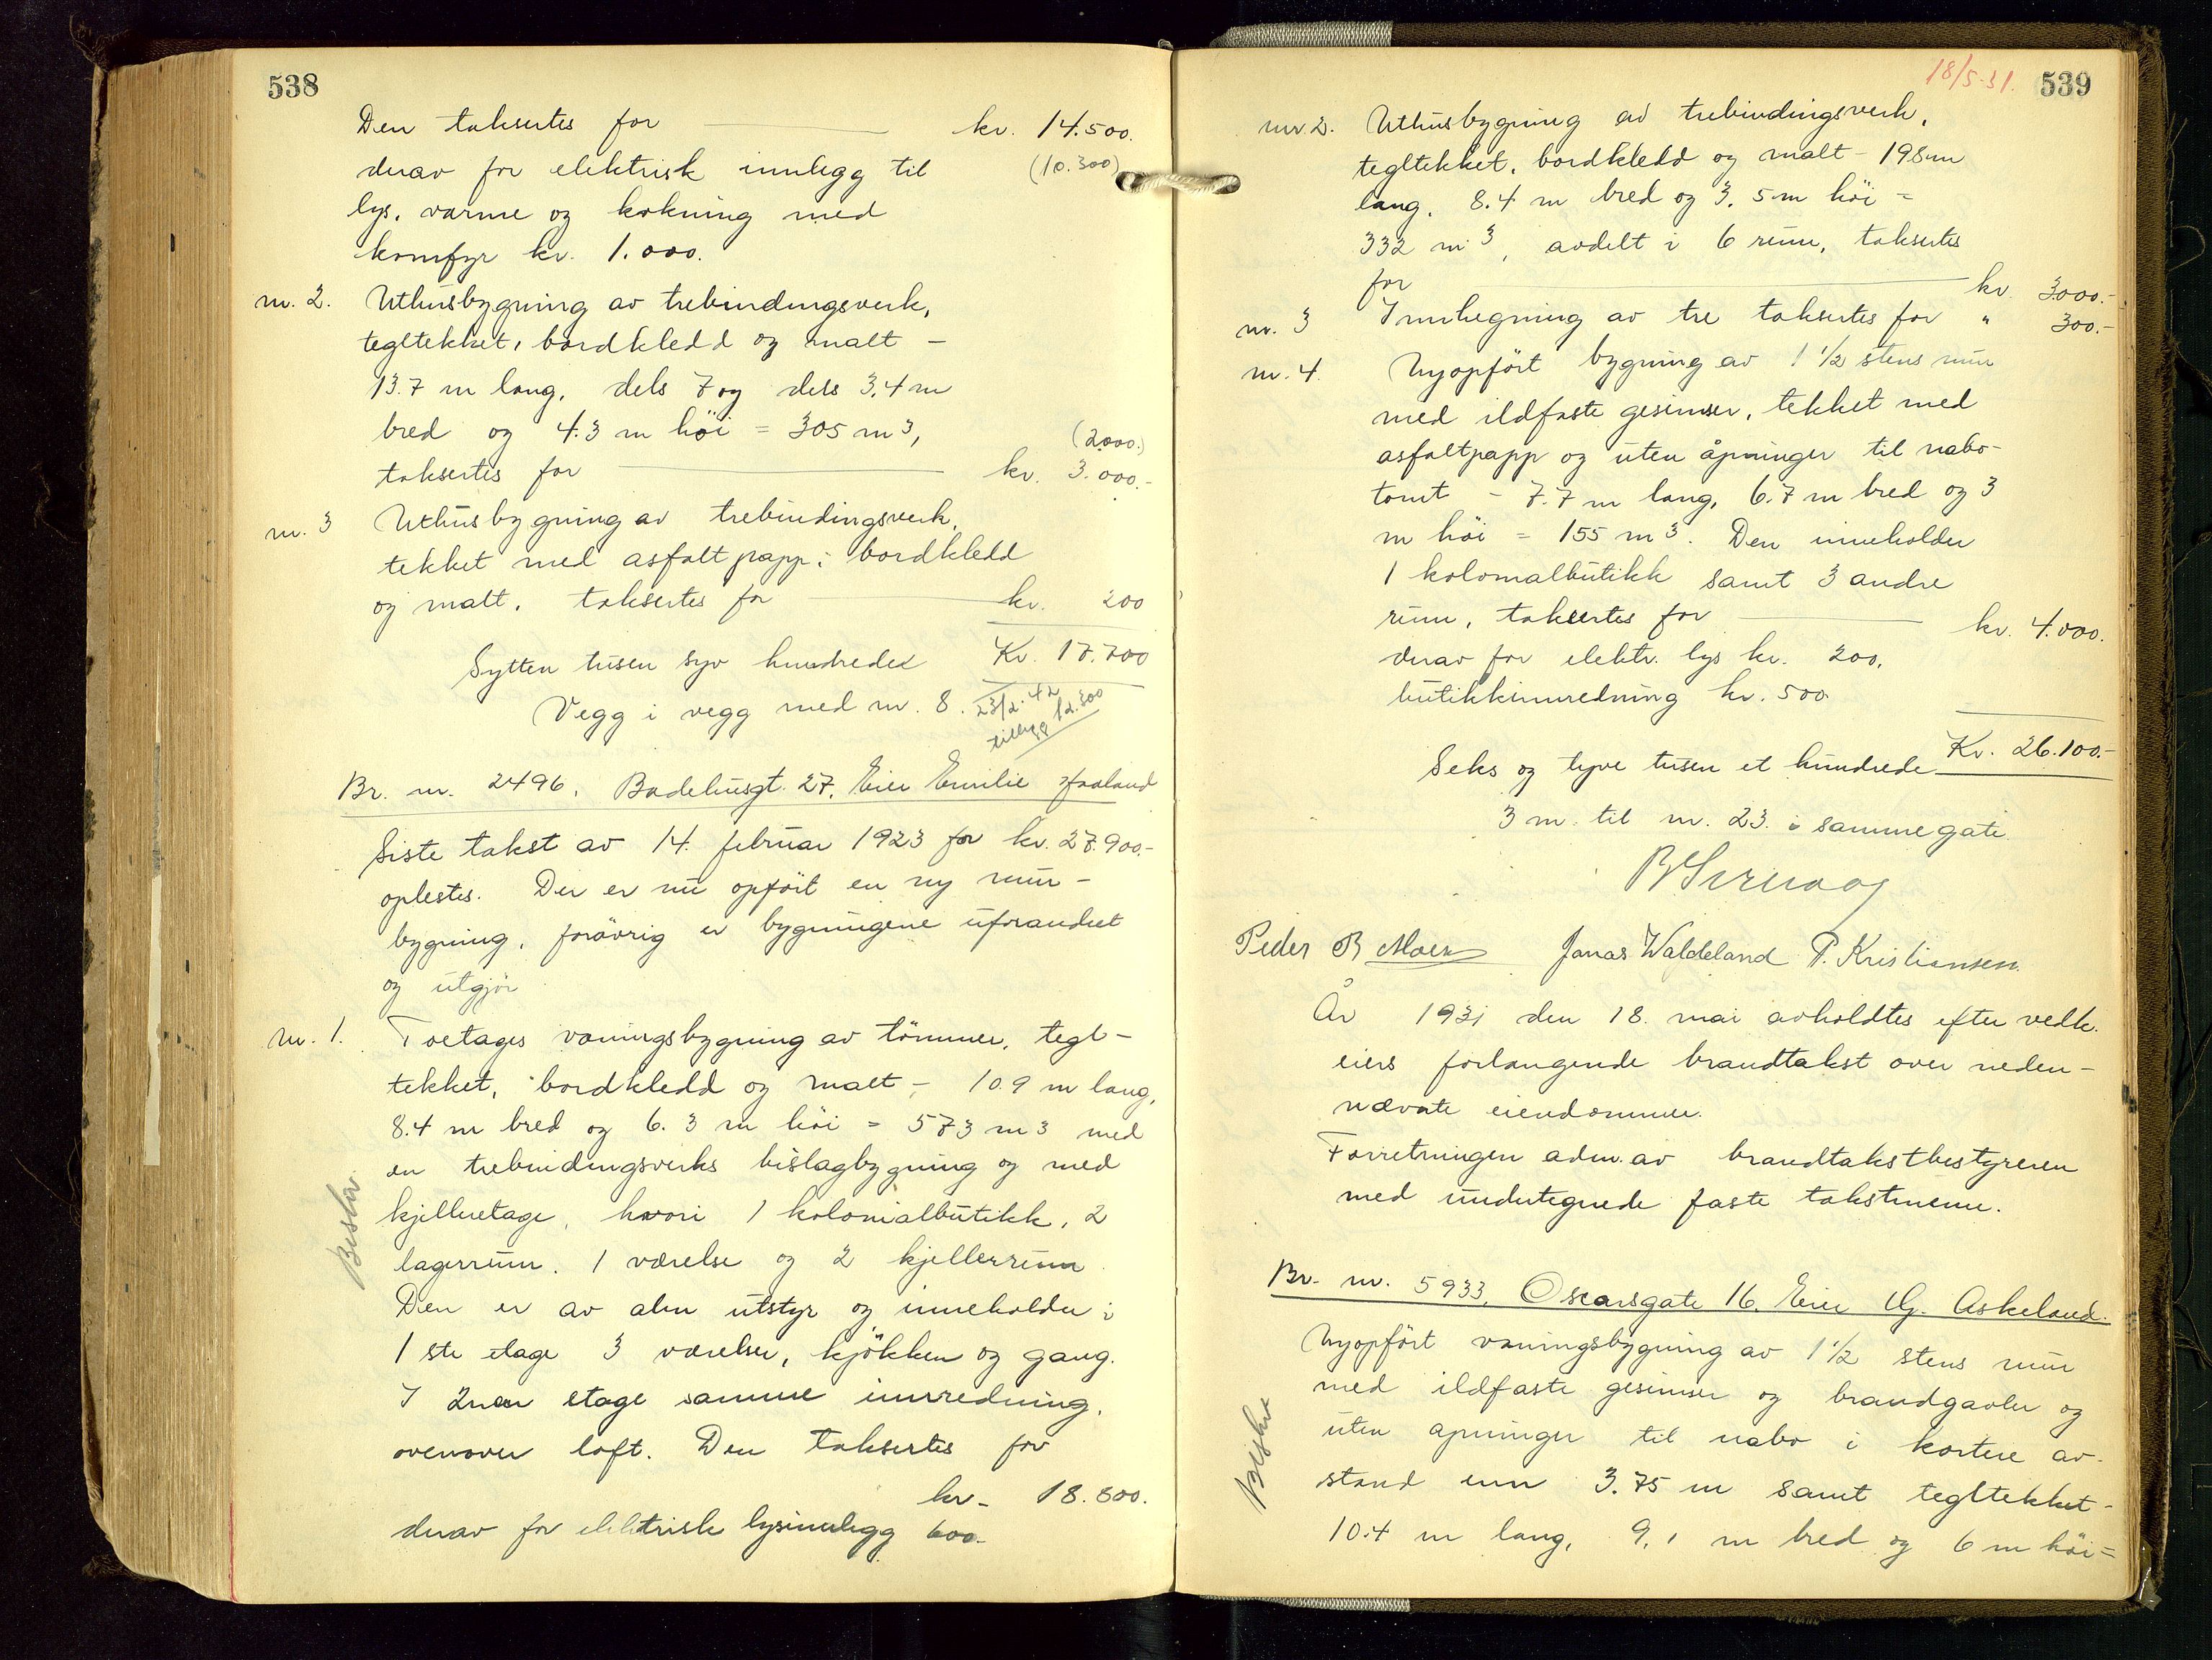 538
Den takseres for kr. 14.500.
derav for elektrisk innlegg til (10.300)
lys, varme og kokning med
komfyr kr. 1.000.
nr. 2. Uthusbygning av trebindingsverk,
tegltekket, bordkledd og malt –
13.7 m lang, dels 7 og dels 3.4 m
bred og 4.3 m höi = 305 m3, (2000.)
taksertes for kr. 3.000.-
nr. 3 Uthusbygning av trebindingsverk,
tekket med asfaltpapp, bordkledd
og malt, taksertes for kr. 200
Sytten tusen syv hundrede Kr. 17.700
Vegg i vegg med nr. 8. 23/2.42
tillegg 12.300
Br. nr. 2496, Badehusgt. 27, Eier Emilie Haaland
Siste takst av 14. februar 1923 for kr. 27.900.-
oplestes. Der er nu opfört en ny mur-
bygning, forövrig er bygningene uforandret
og utgjör
nr. 1. Toetages vaningsbygning av tömmer, tegl-
tekket, bordkledd og malt – 10.9 m lang,
8.4 m bred og 6.3 m höi = 573 m3 med
en trebindingsverks bislagbygning og med
kjelleretage, hvori 1 kolonialbutikk, 2
lagerrum, 1 værelse og 2 kjellerrum.
Den er av alm utstyr og inneholder i
1 ste etage 3 værelser, kjökken og gang.
I 2nen etage samme innredning,
ovenover loft. Den taksertes for
kr - 18.800.
derav for elektrisk lysinnlegg 600.-
18/5-31. 539
nr 2. Uthusbygning av trebindingsverk,
tegltekket, bordkledd og malt – 198 m
lang, 8.4 m bred og 3.5 m höi =
332 m3, avdelt i 6 rum, taksertes
for kr. 3000.-
nr. 3 Innhegning av tre taksertes for " 300.-
nr. 4. Nyopfört bygning av 1 1/2 stens mur
med ildfaste gesimser, tekket med
asfaltpapp og uten åpninger til nabo-
tomt – 7.7 m lang, 6.7 m bred og 3
m höi = 155 m3. Den inneholder
1 kolonialbutikk samt 3 andre
rum, taksertes for kr. 4.000.
derav for elektr. lys kr. 200,
butikkinnredning kr. 500.
Kr. 26.100.-
Seks og tyve tusen et hundrede
3 m. til nr. 23. i samme gate.
Peder B Jonas Waldeland P. Kristiansen.
År 1931 den 18. mai avholdtes efter vedk.
eiers forlangende brandtakst over neden-
nævnte eiendommer.
Forretningen adm. av brandtakstbestyreren
med undertegnede faste takstmenn.
Br. nr. 5933, Oscarsgate 16, Eier Askeland.
Nyopfört vaningsbygning av 1 1/2 stens mur
med ildfaste gesimser og brandgavler og
uten apninger til nabo i kortere av-
stand enn 3.75 m samt tegltekket -
10.4 m lang, 9,1 m bred og 6 m höi =